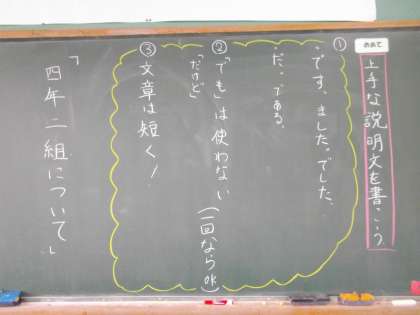 めあて
上手な説明文を書こう。
① ・です、ました。でした、
・だ。である、
② 「でも」は使わない(一回ならOK)
「だけど」
③ 文章は短く!
「四年二組について」